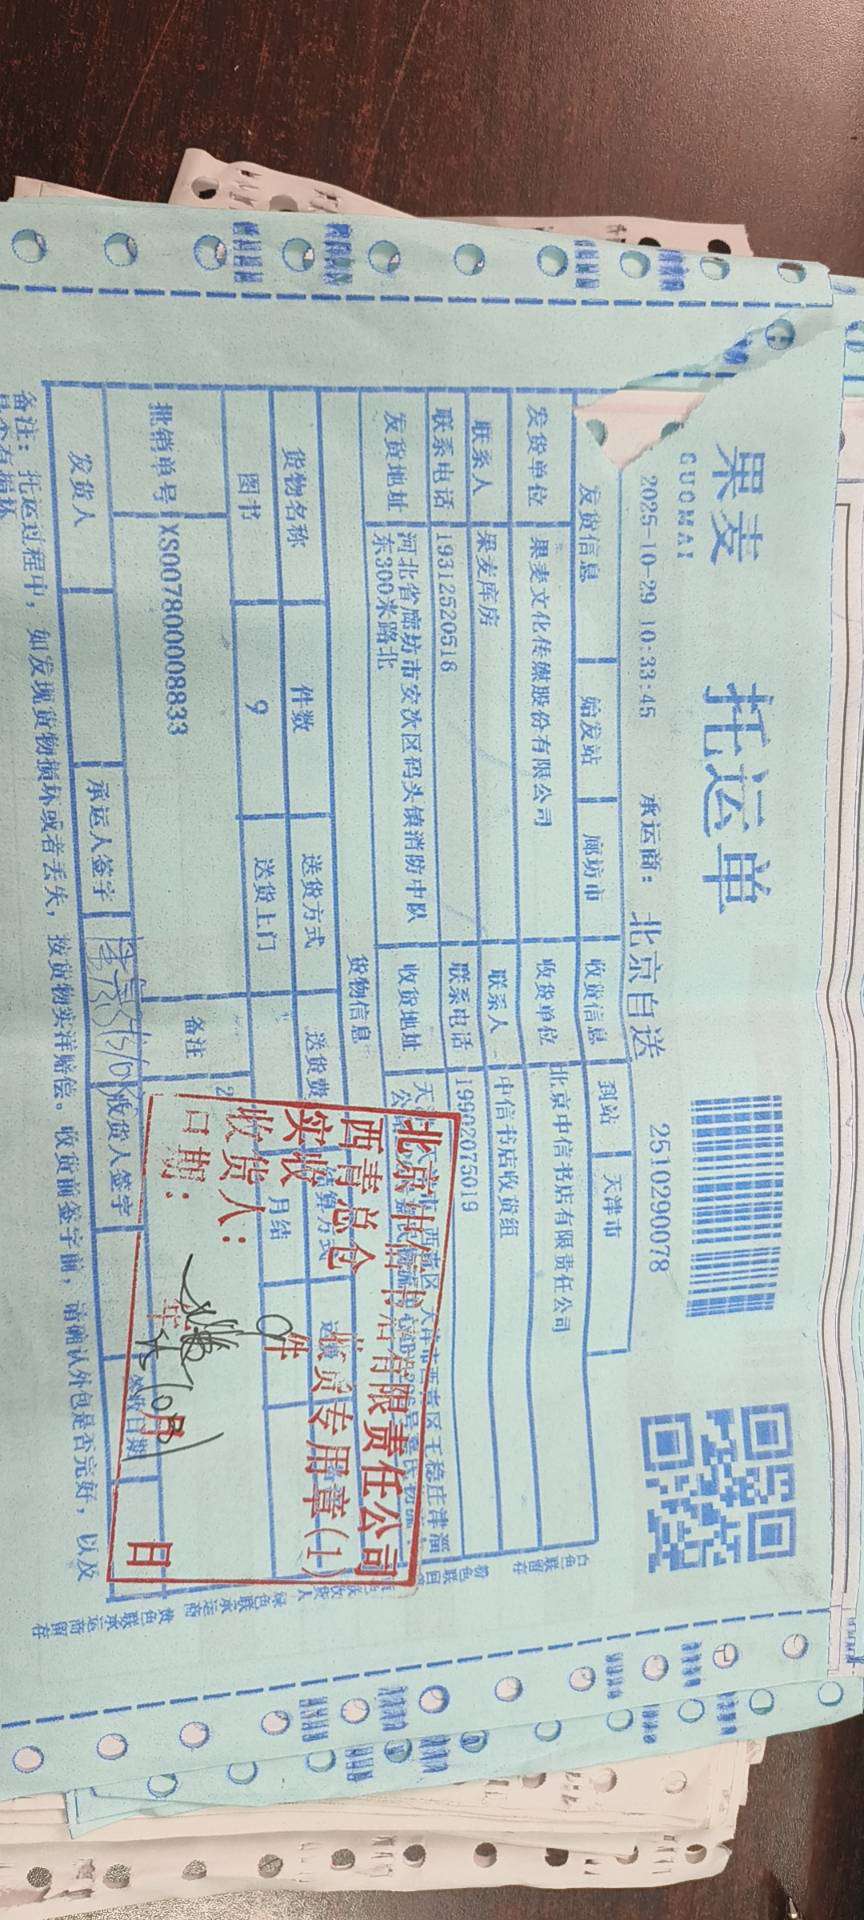 果麦 托运单
GUOMAI
2025-10-29 10:33:45 承运商: 北京自送 2510290078
发货信息 始发站 廊坊市 收货信息 到站 天津市
发货单位 果麦文化传媒股份有限公司 收货单位 北京中信书店有限责任公司
联系人 果麦库房 联系人 中信书店收货组
联系电话 19312520518 联系电话 19902075019
发货地址 河北省廊坊市安次区码头镇消防中队东300米路北 收货地址
货物信息
货物名称 件数 送货方式 送货费
图书 9 送货上门 月结
批销单号 XS007800008833 备注
发货人 承运人签字 收货人签字 签收日期
备注: 托运过程中, 如发现货物损坏或者丢失, 按货物实洋赔偿。收货前签字前, 请确认外包是否完好, 以及
是否有损坏
北京中信书店有限责任公司
西青总仓 收货专用章(1)
实收 9 件
收货人:
日期: 月 日
白色联留存
绿色联承运商
黄色联承运商留存